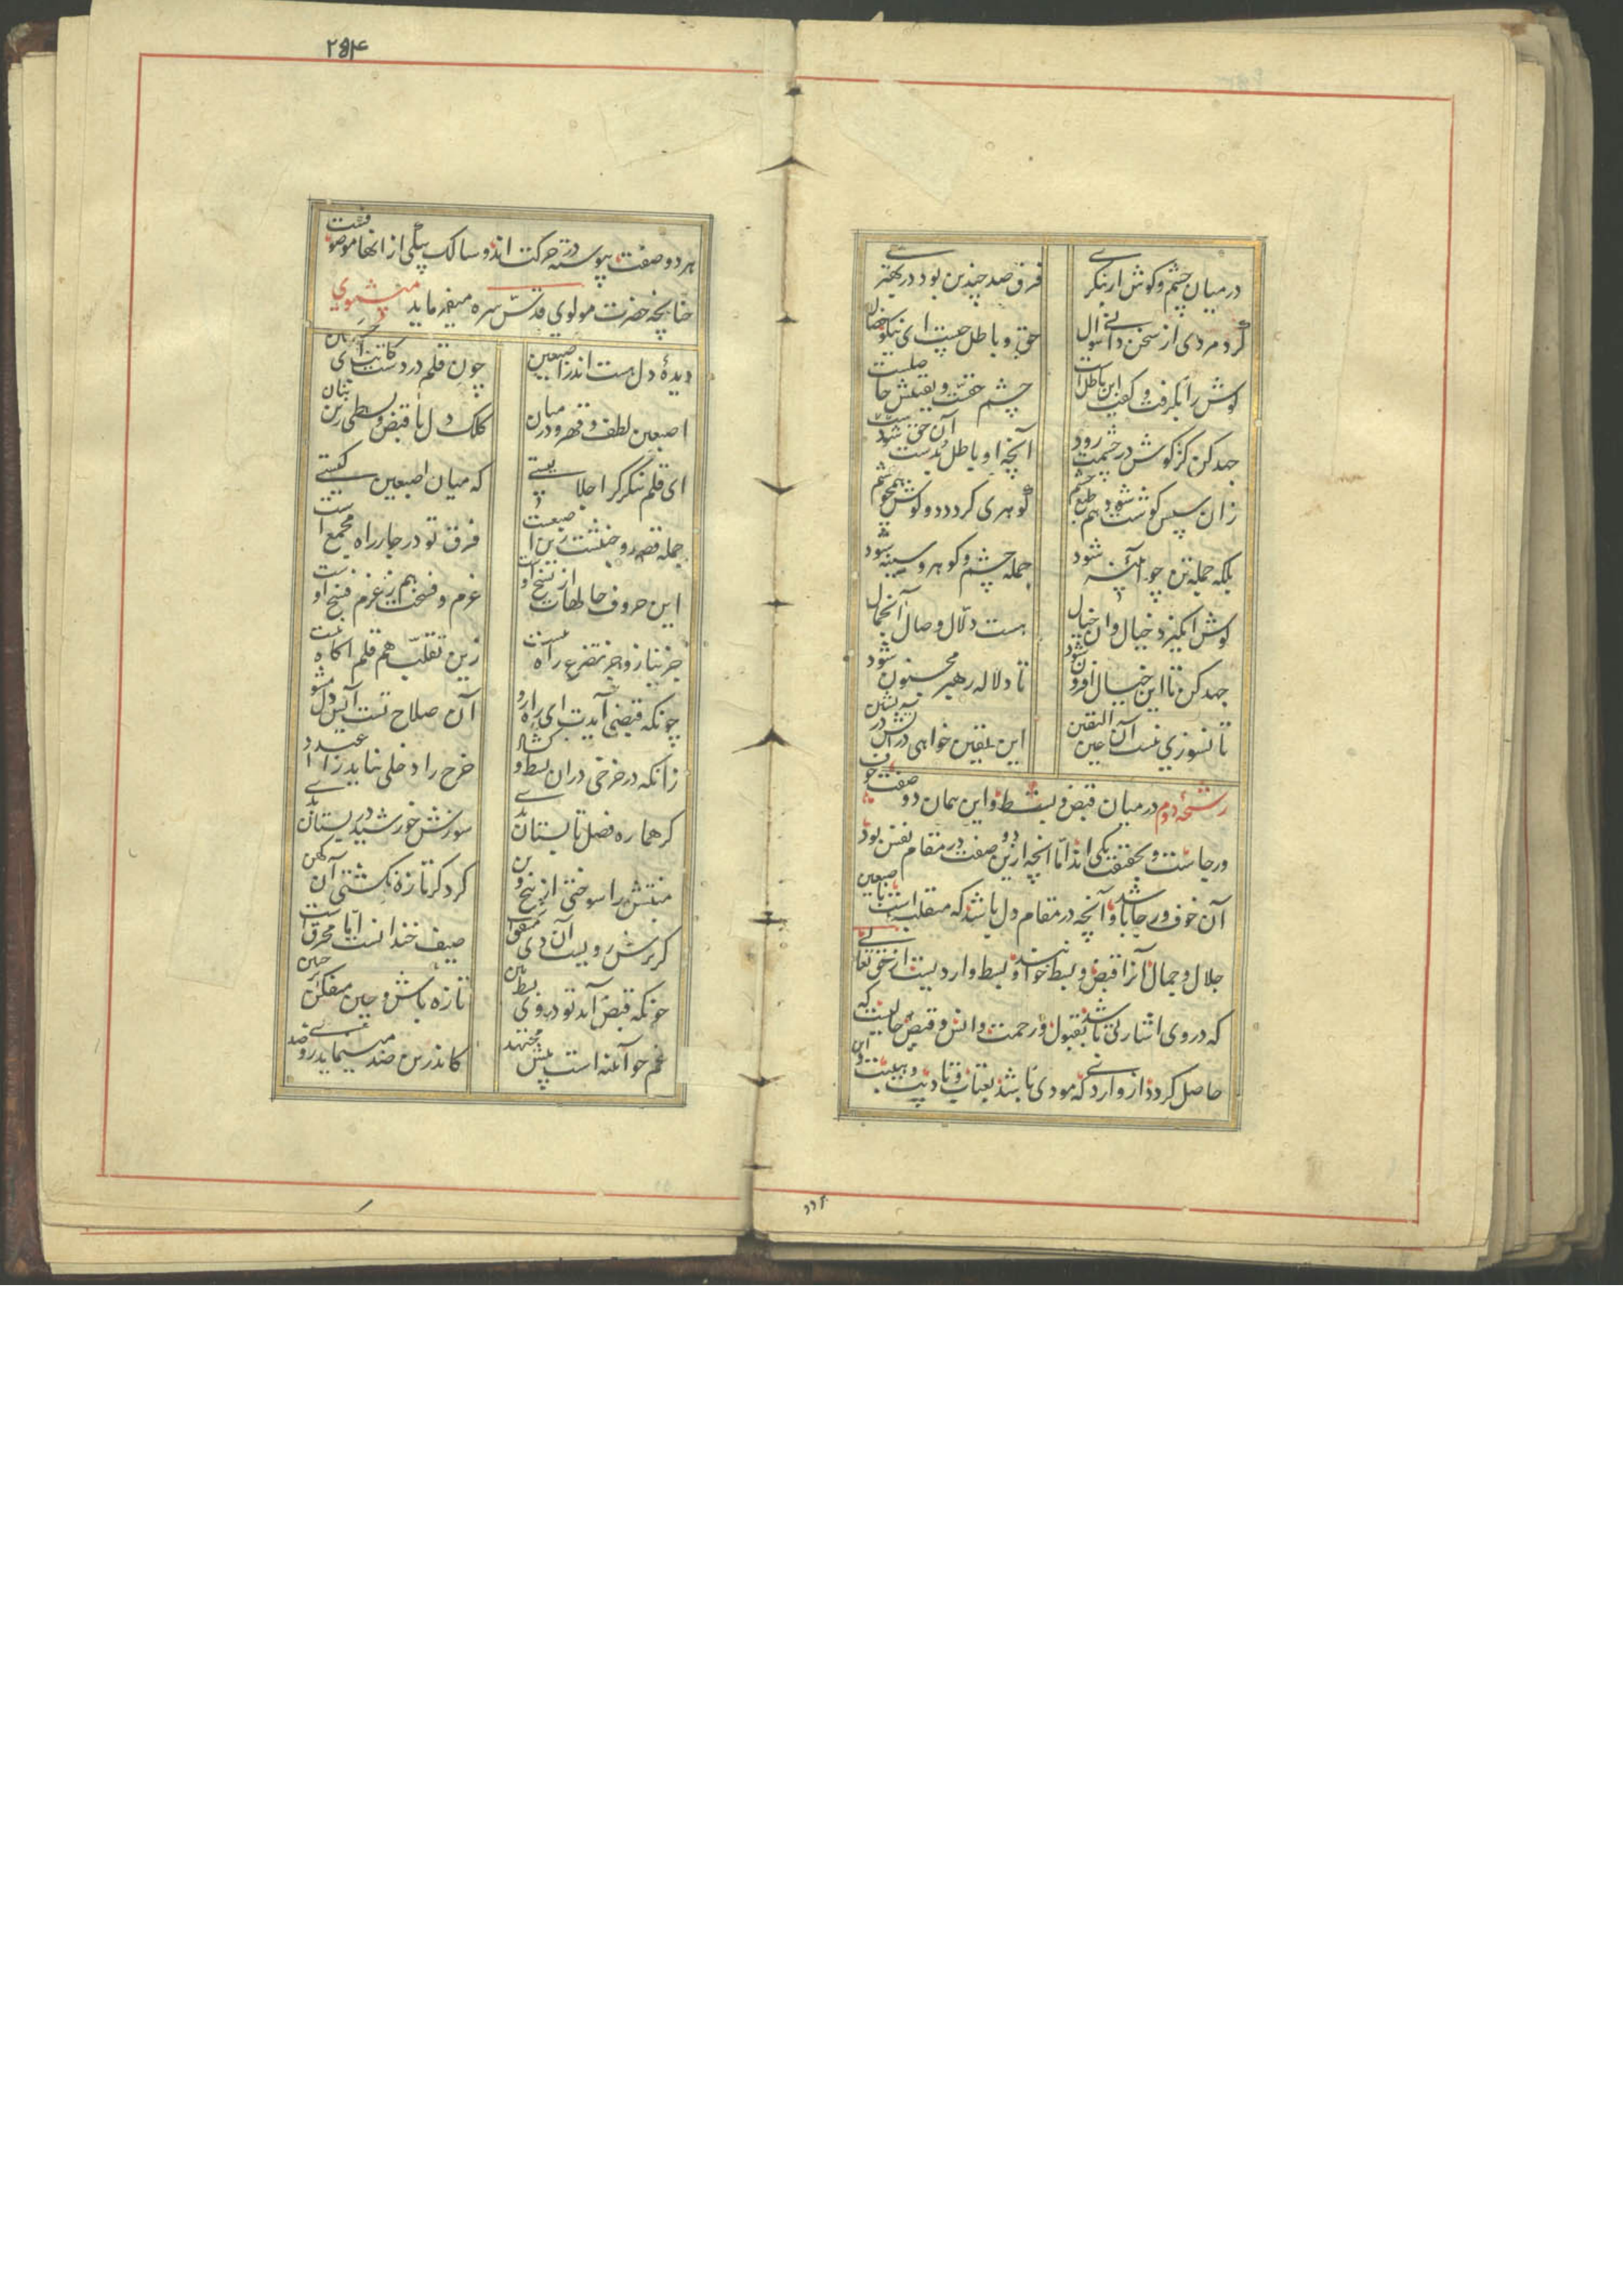 در میان چشم و کوش ار بنکری فرق صد چندین بود در بهتری
کرد مردی از سخن دانی سوال حق و باطل چیست ای نیکو خصال
کوش را بکرفت و کفت این باطل است چشم حقست و یقینش حاصلست
جهد کن کز کوش در چشمت رود آنچه او باطل بدست آن حق شود
زان سپس کوشت شود هم طبع چشم کوهری کردد دو کوش همچو یشم
بلکه جمله تن چو آئینه شود جمله چشم و کوهر و سینه شود
کوش انکیزد خیال و ان خیال هست دلال وصال آنجمال
جهد کن تا این خیال افزون شود تا دلاله رهبر مجنون شود
تا نسوزی نیست آن عین الیقین این یقین خواهی در آتش در نشین
رشحهٔ دوم در میان قبض و بسط و این همان دو صفت خوف
و رجاست و بحقیقت یکی اند اما انچه ازین دو صفت در مقام نفس بود
آن خوف و رجا باشد و آنچه در مقام دل باشد که متقلب است باصبعین
جلال و جمال آنرا قبض و بسط خوانند و بسط واردیست از حق تعالی
که در وی اشارتی باشد بقبول و رحمت و انس و قبض حالیست که
حاصل کردد از واردی که مودی باشد بعتاب و تادیب و هیبت و این
۲۵۴
هر دو صفت پیوسته در حرکت اند و سالک بیکی از انها موصوفست
چنانچه حضرت مولوی قدس سره میفرماید مثنوی
دیدهٔ دل هست اندر اصبعین چون قلم در دست کاتب ای حسین
اصبعین لطف و قهر و در میان کلک دل با قبض و بسطی زین بنان
ای قلم بنکر کر اجلالیستی که میان اصبعین کیستی
جمله قصد و جنبشت زین اصبعست فرق تو در چار راه مجمع است
این حروف حالهات از نسخ اوست عزم و فسخت هم ز عزم فسخ اوست
جز نیاز و جز تضرع راه نیست زین تقلب هم قلم اکاه نیست
چونکه قبضی آیدت ای راه رو آن صلاح تست آیس دل مشو
زانکه در خرجی در ان بسط و کشاد خرج را دخلی بباید ز اعتداد
کر هماره فصل تابستان بدی سوزش خورشید در بستان بدی
منبتش را سوختی از بیخ و بن کرد کر تازه نکشتی آن کهن
کر ترش رویست آن دی مشفق است صیف خندانست اما محرق است
چونکه قبض آید تو در وی بسط بین تازه باش و چین میفکن بر جبین
غم چو آئنه است پیش مجتهد کاندرین ضد مینماید روی ضد